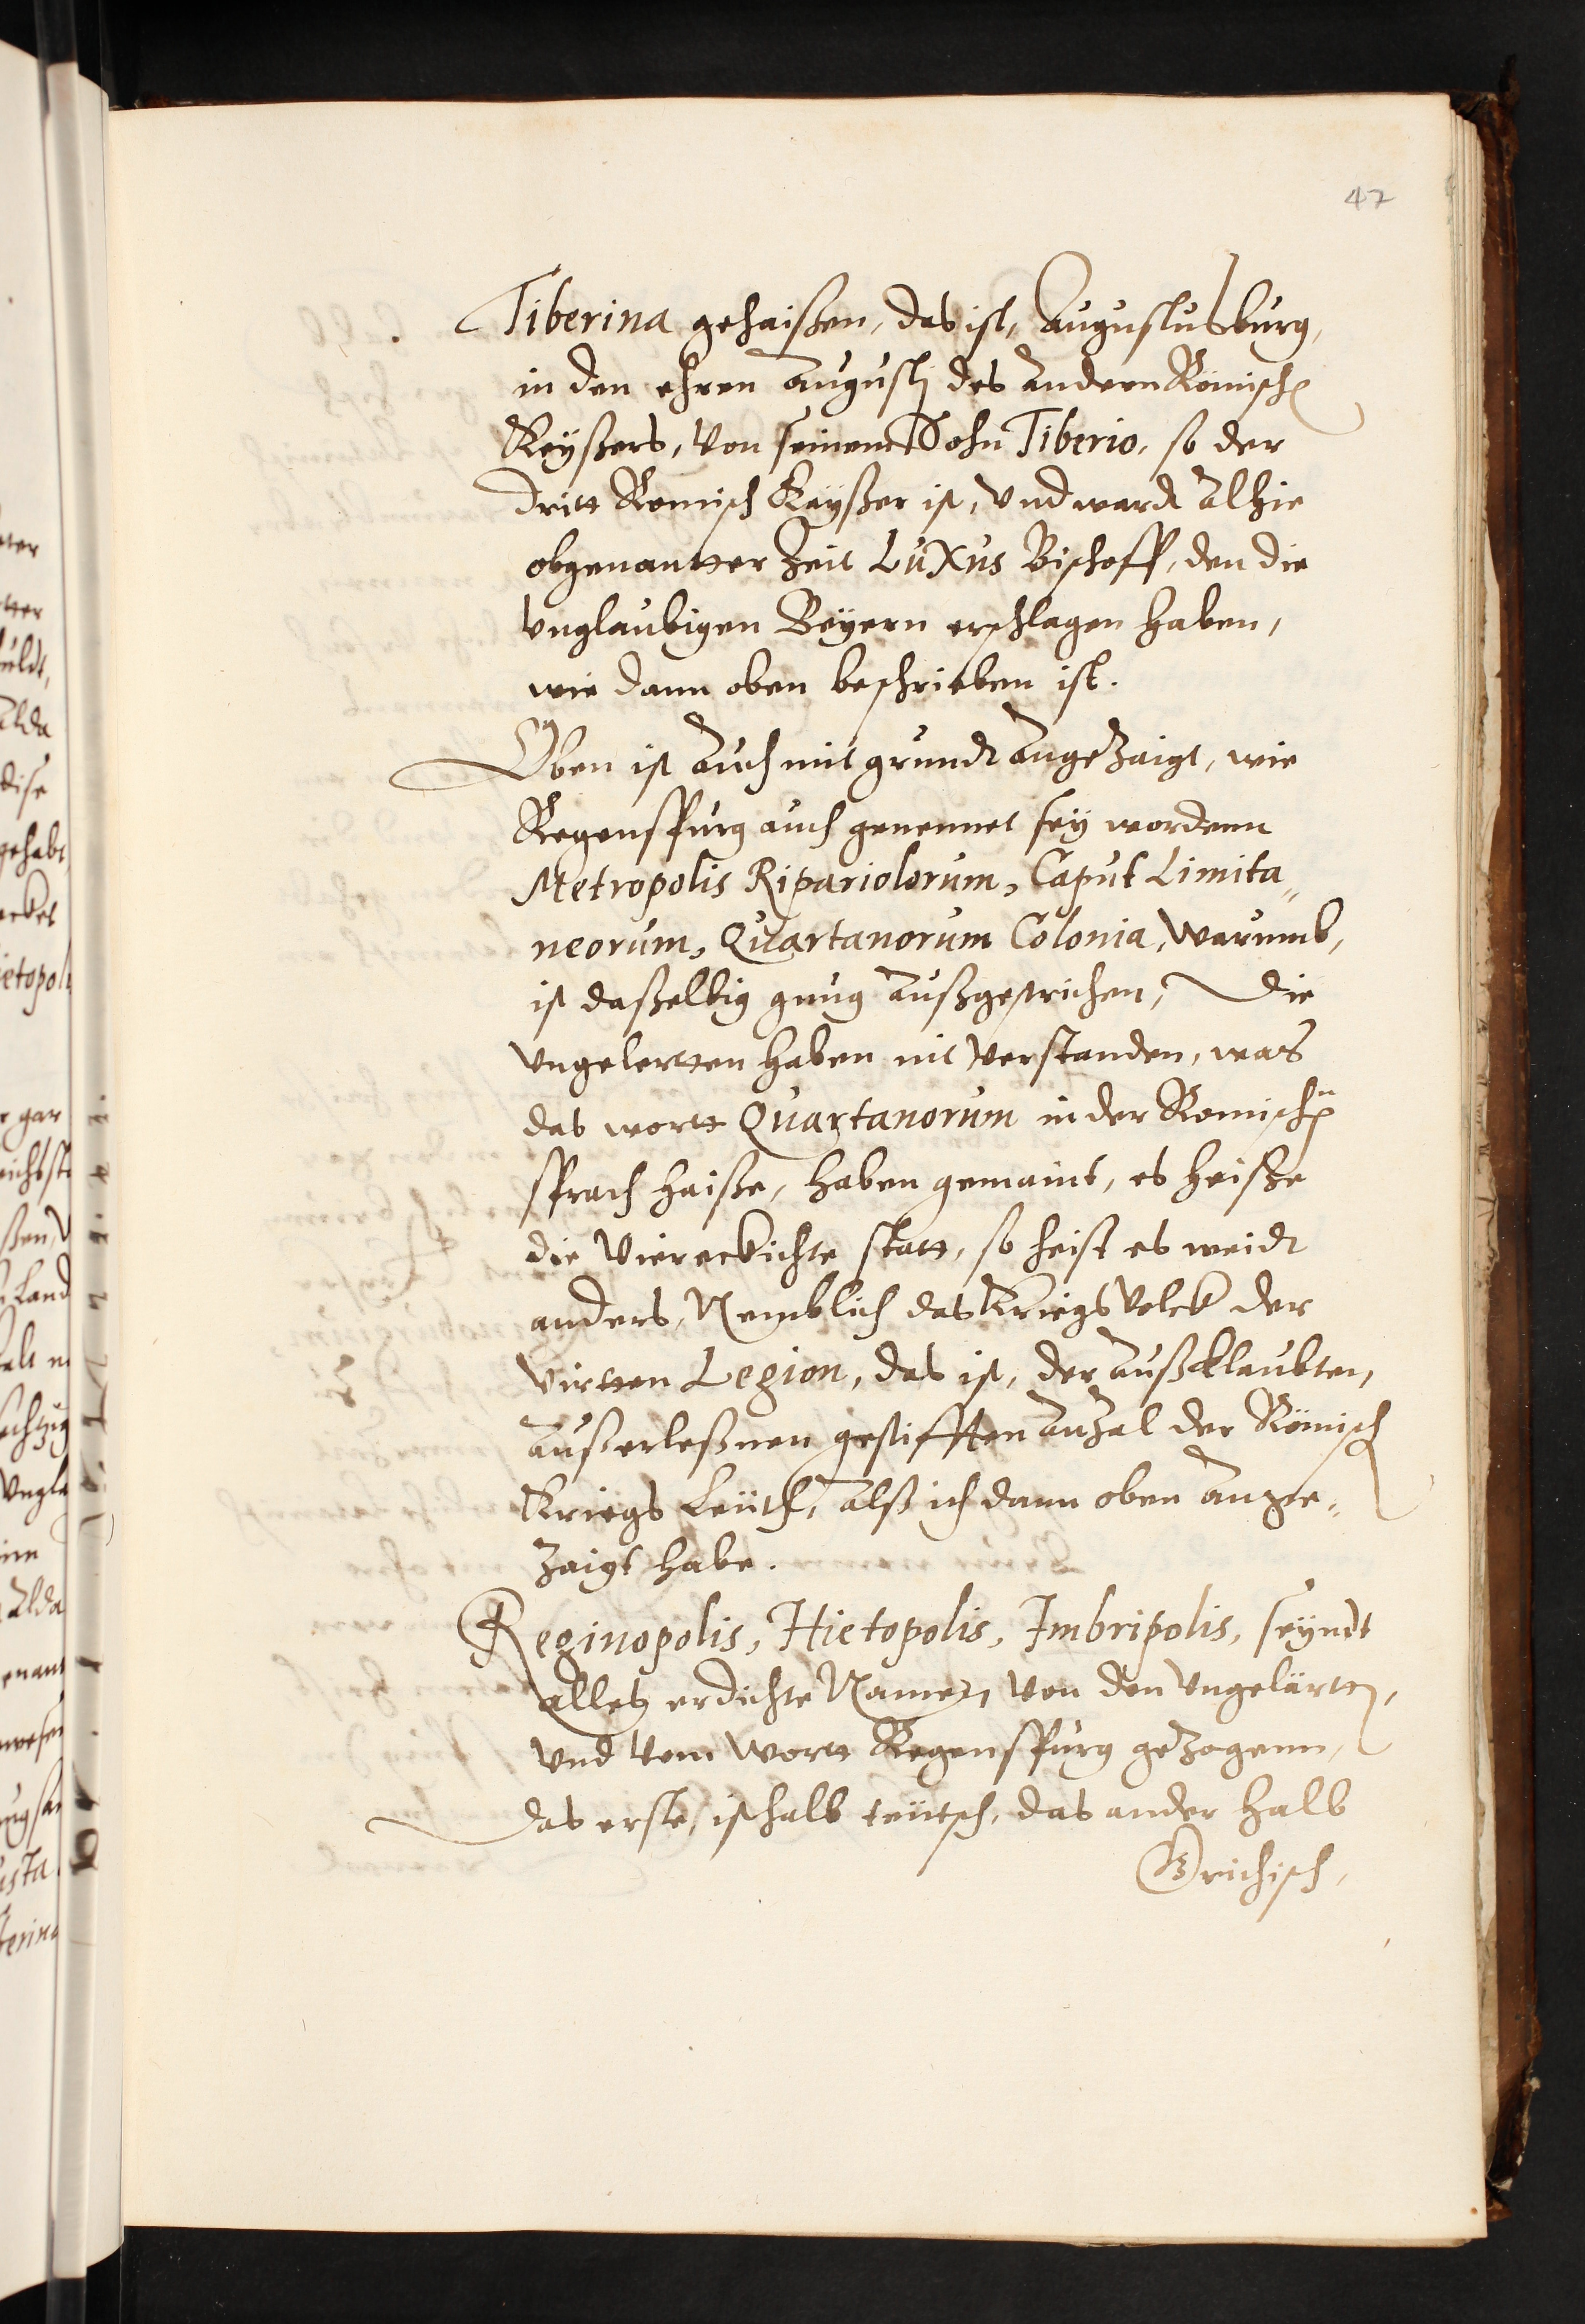 47
Tiberina gehaißen, das ist, Augustusburg,
in den ehren Augustj des andern Römisch(en)
Keyßers, von seinem Sohn Tiberio, so der
dritt Romisch Kayßer ist, vnd ward alhie
obgenantter Zeit LuXus Bischoff, den die
vnglaubigen Beyern erschlagen haben,
wie dann oben beschrieben ist.
Oben ist auch mit grundt angeZaigt, wie
Regenspurg auch genennet sey wordenn
Metropolis Ripariolorum, Caput Limita„
neorum, Quartanorum Colonia, warumb,
ist daßelbig gnug außgestrichen, die
vngelertten haben nit verstanden, was
das wortt Quartanorum in der Romischn
sprach haiße, haben gemaint, es heiße
die Viereckichte statt, so heist es weidt
anders, Nemblich das KriegsVolck der
virtten Legion, das ist, der außklaubten,
außerleßnen gestifften anZal der Römisch
Kriegs Leüth, alß ich dann oben ange„
Zaigt habe.
Reginopolis, Hietopolis, Imbripolis, seyndt
alles erdichte Namen, von den vngelärtt(en),
vnd vom wortt Regenspurg geZogenn,
das erste, ist halb teütsch, das ander halb
Grichisch,